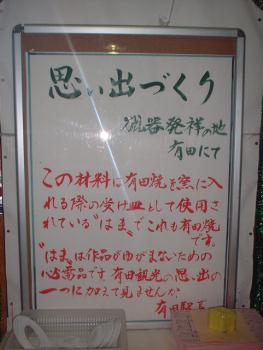 思い出づくり
磁器発祥の地
有田にて
この材料は有田焼を窯に入
れる際の受け皿として使用さ
れている"はま"でこれも有田焼
です。
"はま"は作品がゆがまないための
必需品です 有田観光の思い出の
一つに加えて見ませんか
有田駅長